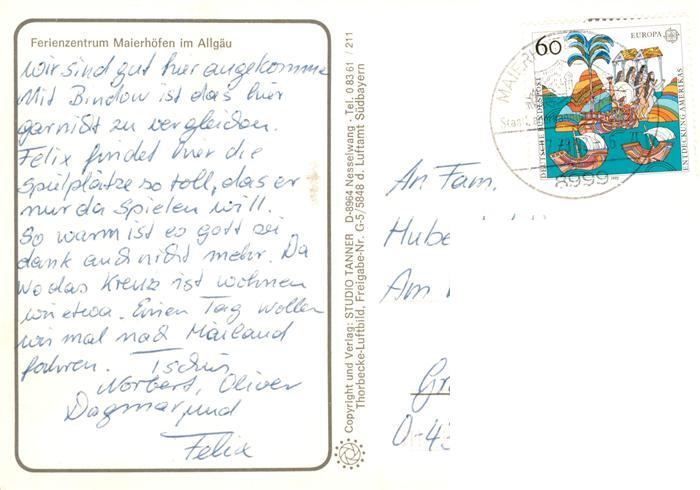 Ferienzentrum Maierhöfen im Allgäu
wir sind gut hier angekomme
Mit Bindow ist das hier
garnist zu vergleichen.
Felix findet hier die
Spielplätze so toll, das er
nur da spielen will.
So warm ist es gott sei
dank auch nicht mehr. Da
wo das Kreuz ist wohnen
wir etwa. Einen Tag wollen
wir mal nach Mailand
fahren. Tschüs
Norbert, Oliver
Dagmar, und
Felix
Copyright und Verlag: STUDIO TANNER D-8964 Nesselwang · Tel. 0 83 61 / 211
Thorbecke-Luftbild, Freigabe-Nr. G-5/5848 d. Luftamt Südbayern
60
EUROPA
DEUTSCHE BUNDESPOST
ENTDECKUNG AMERIKAS
1992
MAIER
8999
An Fam.
Hube
Am
Gr
O-43